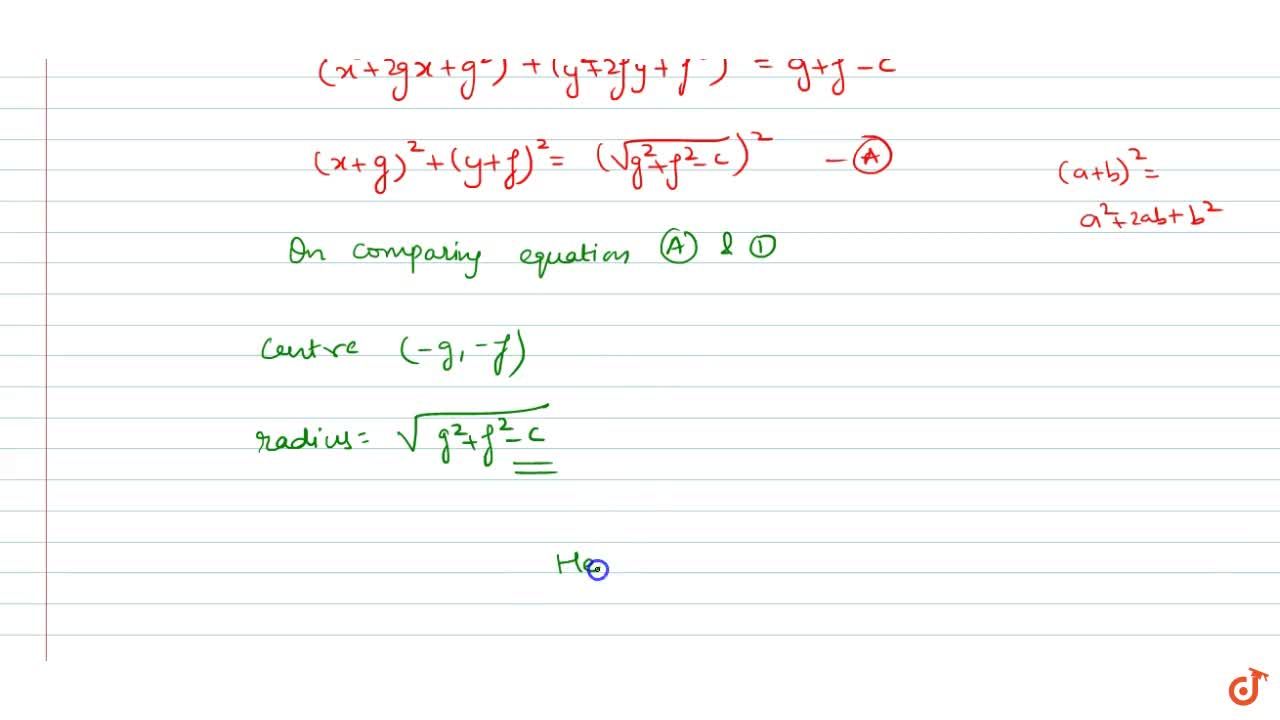 (x²+2gx+g²) + (y²+2fy+f²) = g²+f²-c
(x+g)²+(y+f)² = (√g²+f²-c)² - Ⓐ
(a+b)² =
a²+2ab+b²
On comparing equation Ⓐ & ①
Centre (-g, -f)
radius = √g²+f²-c
He